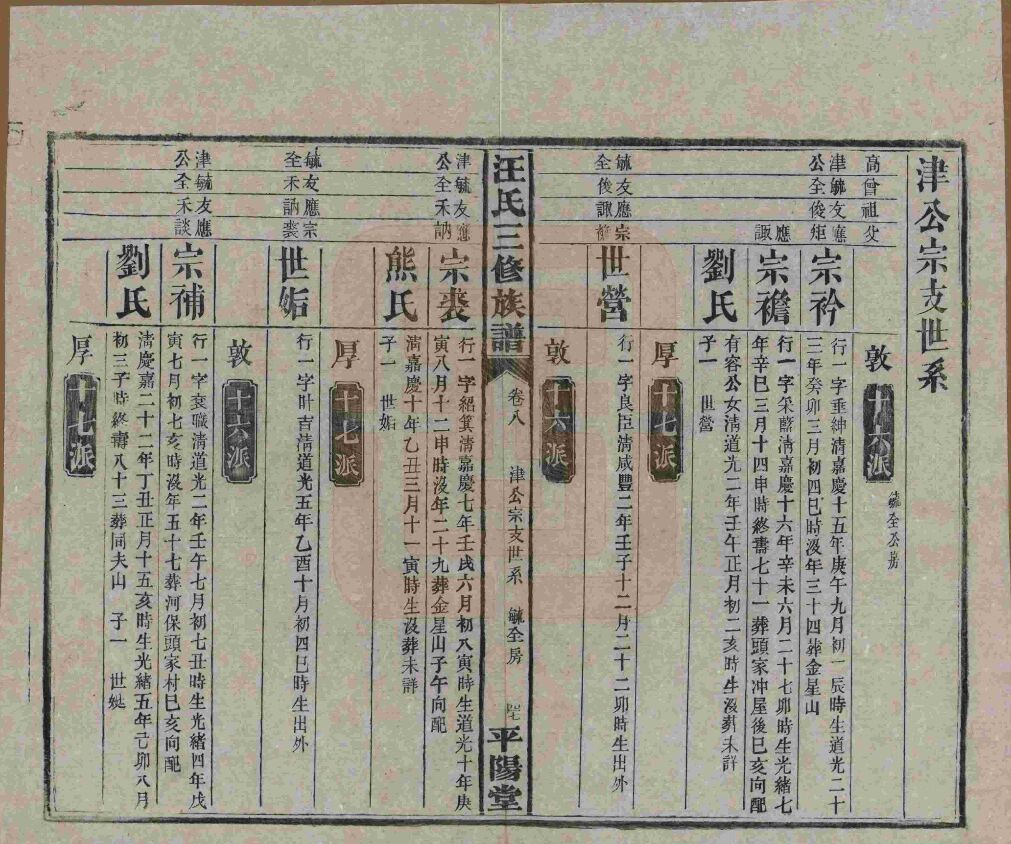 津公宗支世系
高曾祖父
敦
十六派
毓全公房
津毓友應
公全俊炬
宗衿
行一字垂紳清嘉慶十五年庚午九月初一辰時生道光二十
三年癸卯三月初四巳時沒年三十四葬金星山
應
諏
宗襜
行一字采藍清嘉慶十六年辛未六月二十七卯時生光緒七
年辛巳三月十四申時終壽七十一葬頭家冲屋後巳亥向配
劉氏
有容公女清道光二年壬午正月初二亥時生沒葬未詳
子一 世營
厚
十七派
毓友應宗
全俊諏襜
世營
行一字良臣清咸豐二年壬子十二月二十二卯時生出外
敦
十六派
汪氏三修族譜
卷八
津公宗支世系 毓全房
平陽堂
津毓友應
公全禾訥
宗裘
行一字紹箕清嘉慶七年壬戌六月初八寅時生道光十年庚
寅八月十二申時沒年二十九葬金星山子午向配
熊氏
清嘉慶十年乙丑三月十一寅時生沒葬未詳
子一 世姤
厚
十七派
毓友應宗
全禾訥裘
世姤
行一字叶吉清道光五年乙酉十月初四巳時生出外
敦
十六派
津毓友應
公全禾談
宗補
行一字袞職清道光二年壬午七月初七丑時生光緒四年戊
寅七月初七亥時沒年五十七葬河保頭家村巳亥向配
劉氏
清慶嘉二十二年丁丑正月十五亥時生光緒五年己卯八月
初三子時終壽八十三葬同夫山 子一 世
厚
十七派